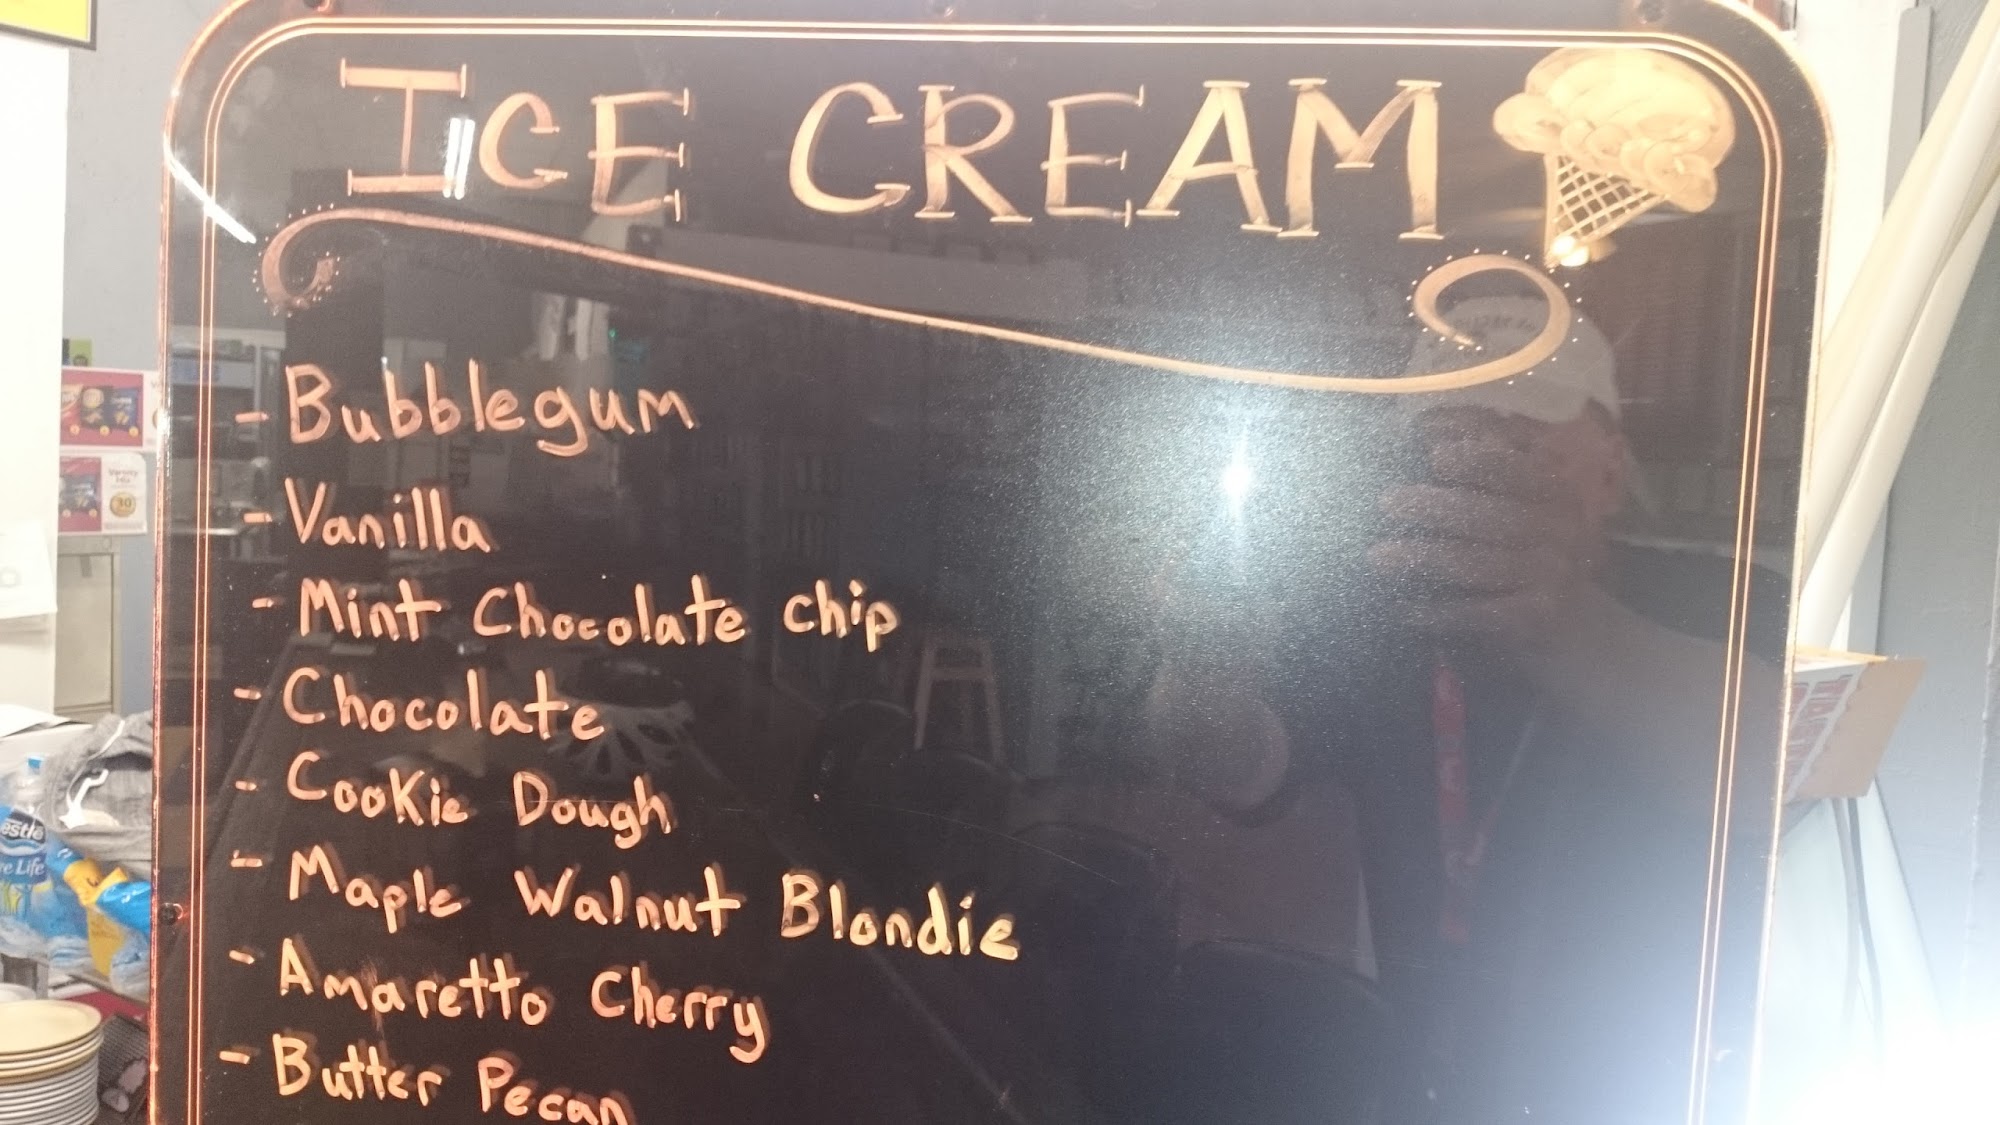 ICE CREAM
- Bubblegum
- Vanilla
- Mint Chocolate chip
- Chocolate
- Cookie Dough
- Maple Walnut Blondie
- Amaretto Cherry
- Butter Pecan
Variety
Mix
30
estlé
re Life